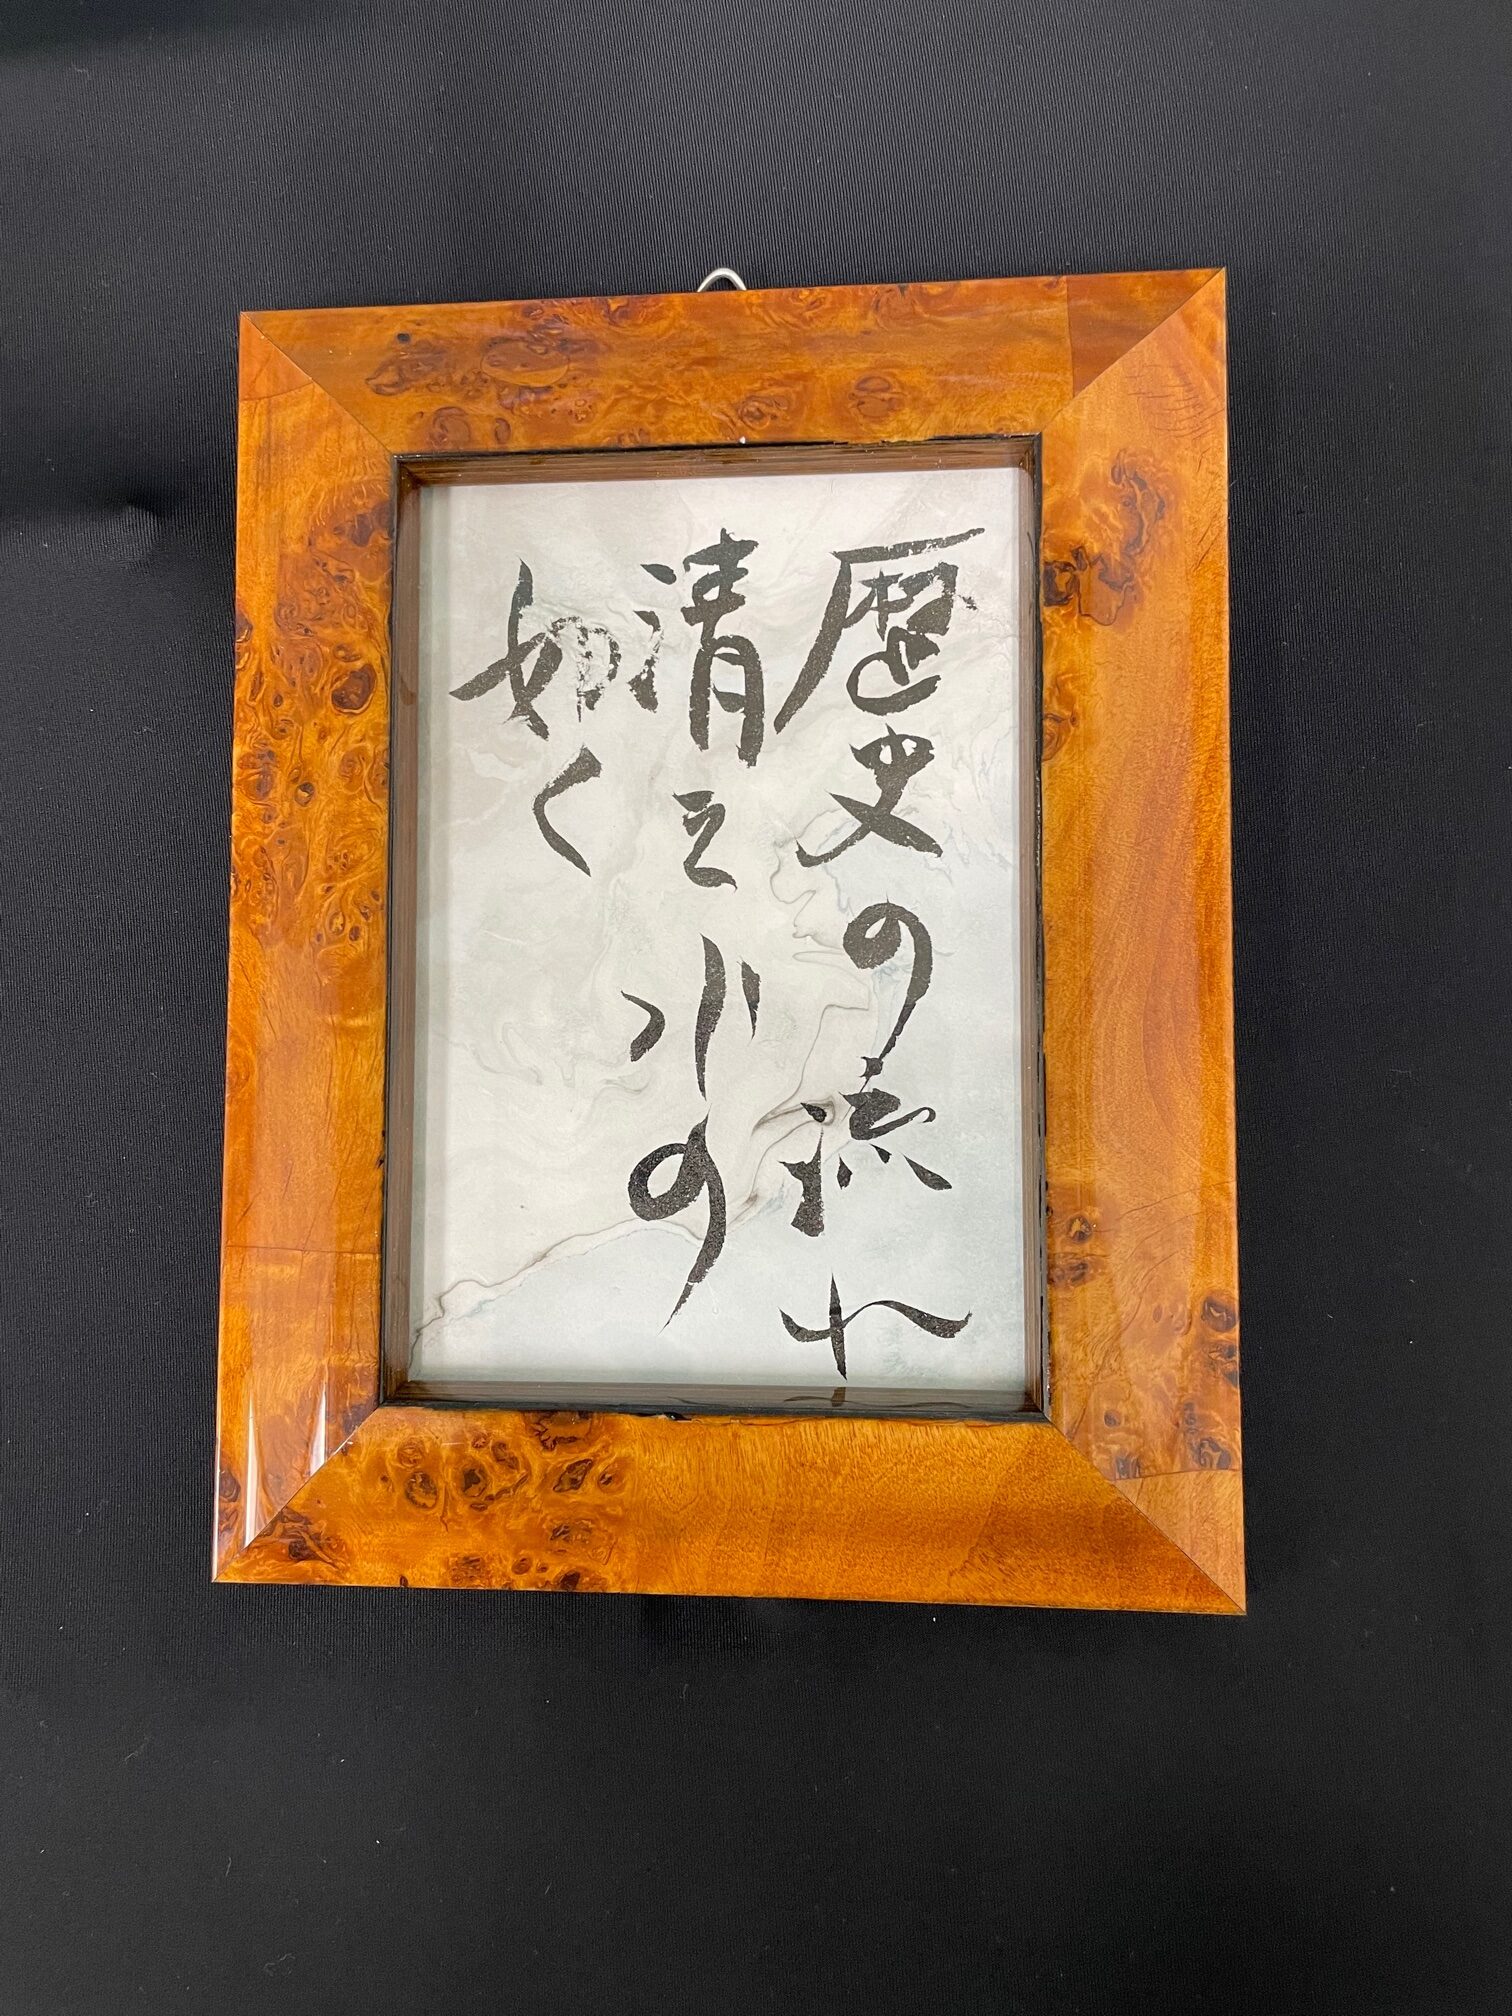 歴史の流れ
清之水の
如く